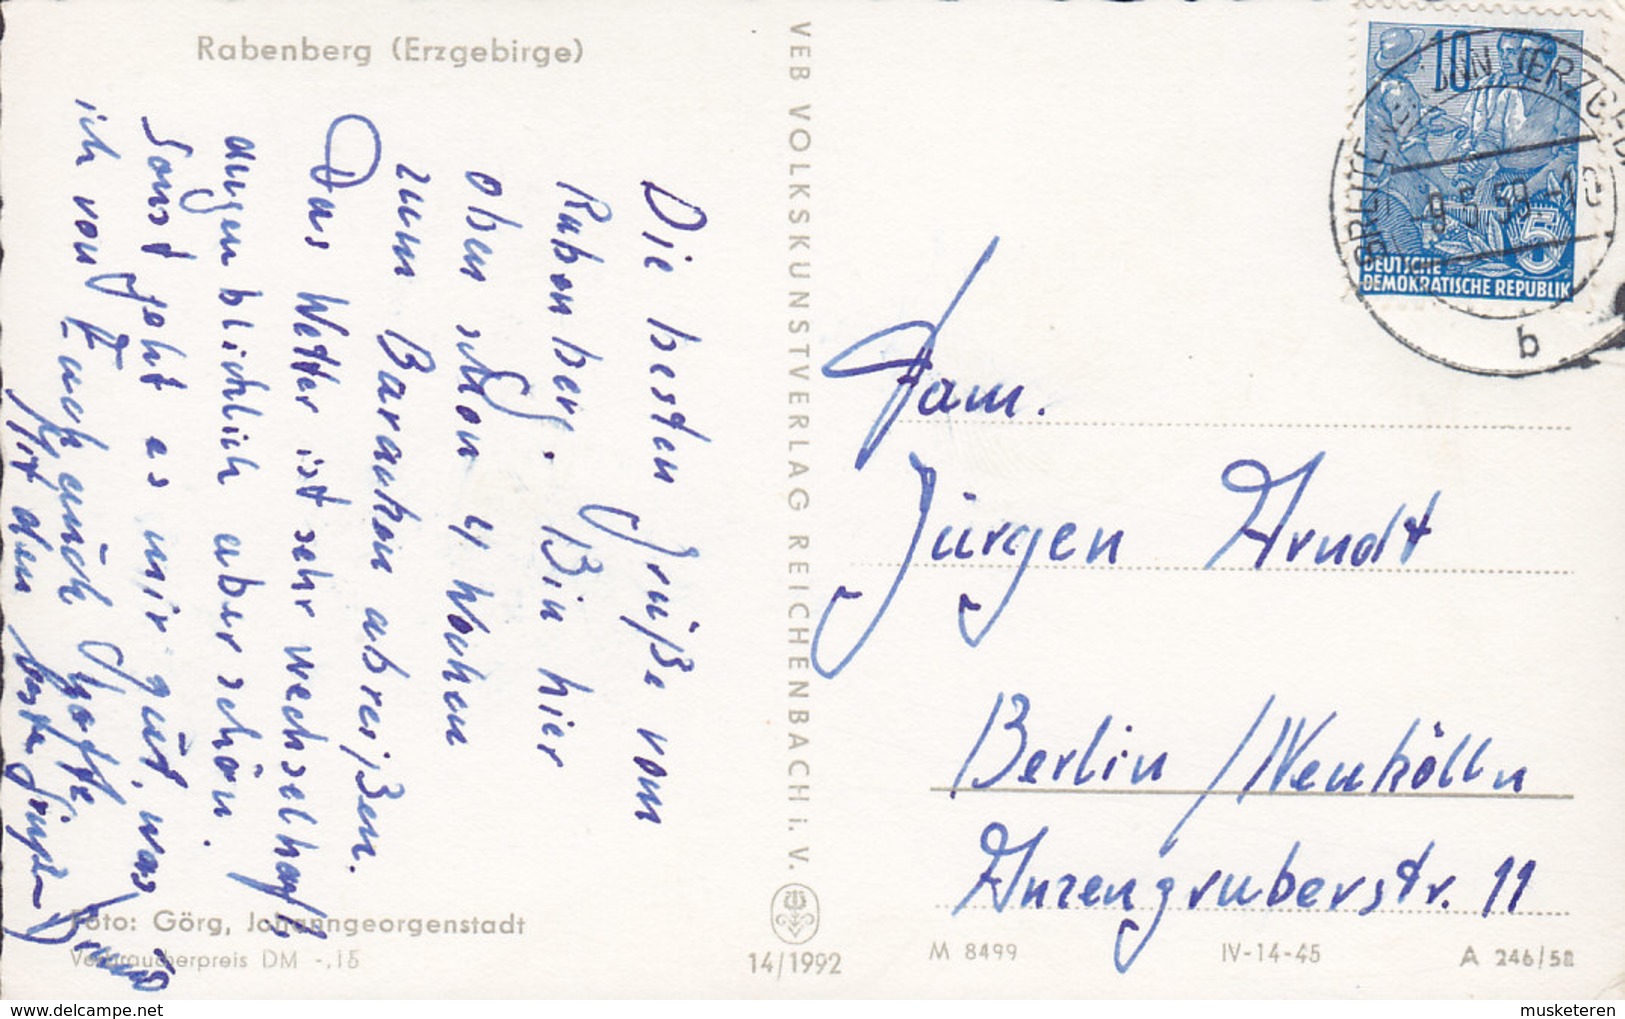 Rabenberg (Erzgebirge)
Die besten Grüße vom
Rabenberg. Bin hier
oben schon 4 Wochen
zum Baracken abreißen.
Das Wetter ist sehr wechselhaft,
augenblicklich aber schön.
Sonst geht es mir gut, was
ich von Euch auch hoffe.
Mit den besten Grüßen
Foto: Görg, Johanngeorgenstadt
Verbraucherpreis DM -,15
VEB VOLKSKUNSTVERLAG REICHENBACH i. V.
14/1992
10
DEUTSCHE
DEMOKRATISCHE REPUBLIK
5
-9.5.59.-10
b
Fam.
Jürgen Arndt
Berlin /Neukölln
Anzengruberstr. 11
M 8499
IV-14-45
A 246/58
musketeren